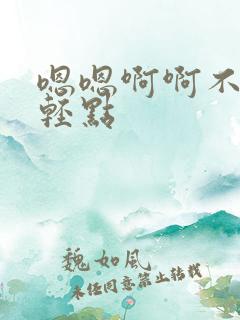 嗯嗯啊啊不
輕點
魏如風
未經同意禁止轉載